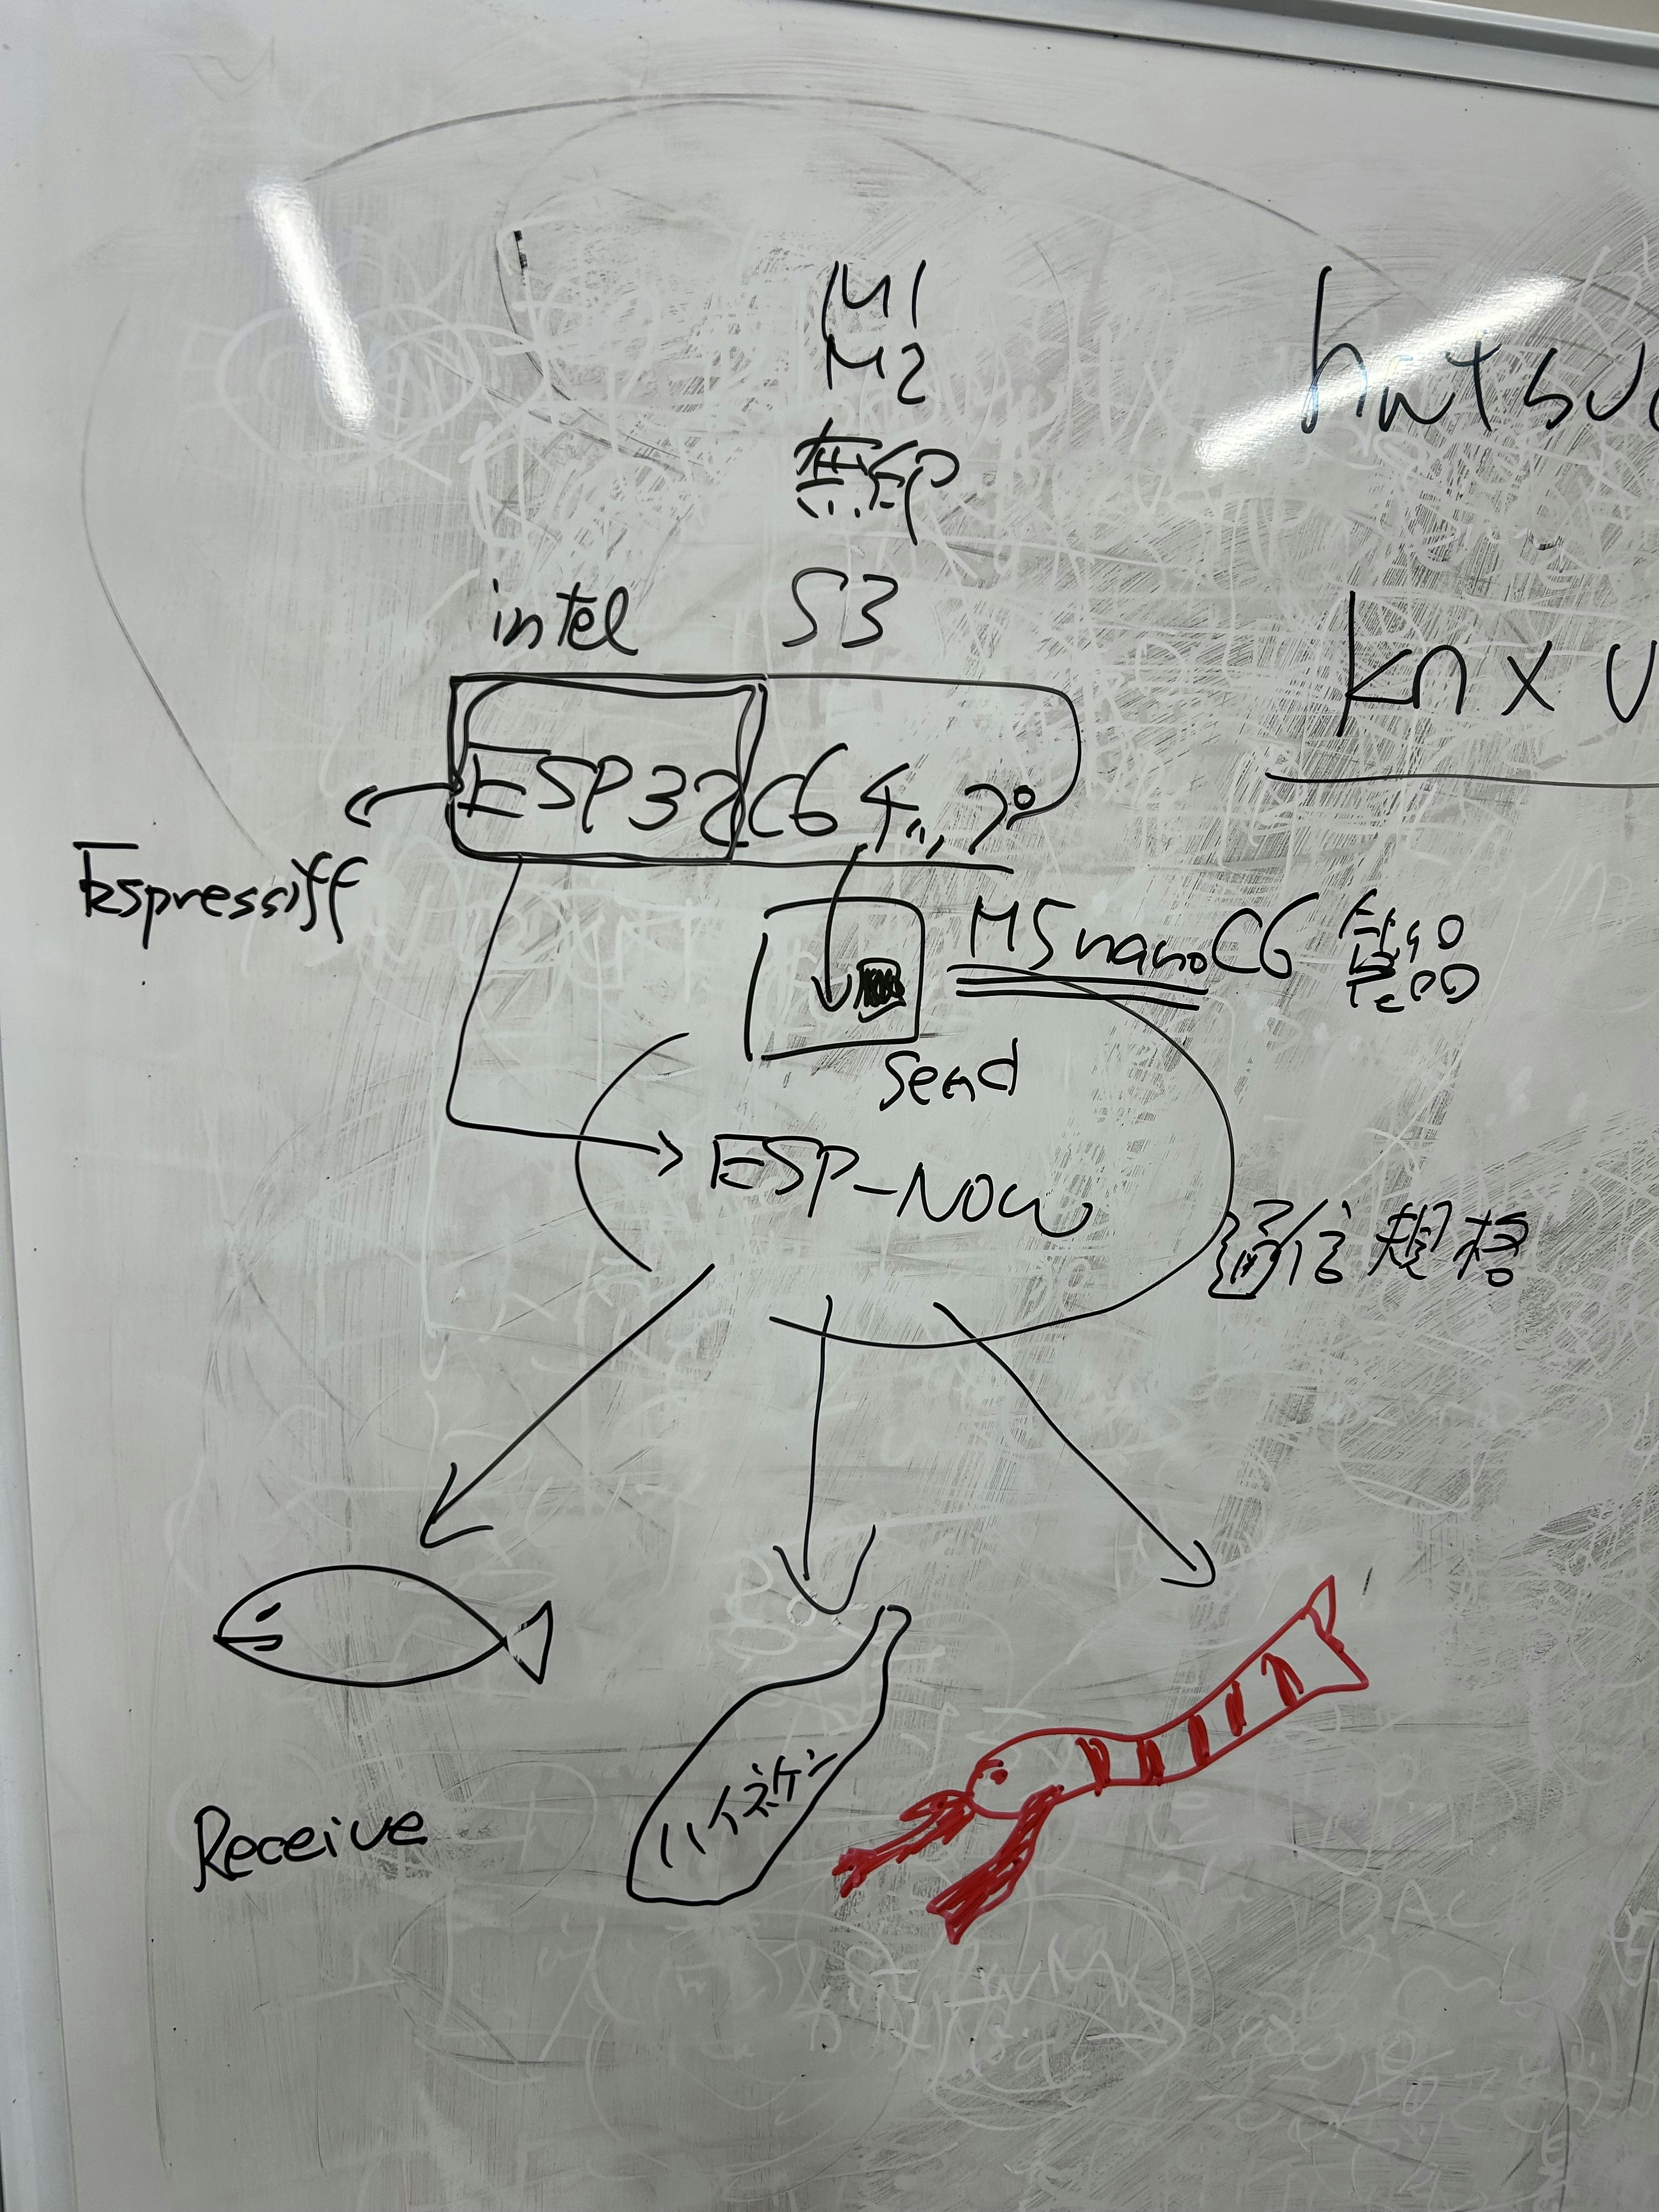 M1
M2
無印
intel S3
ESP32 C6 チップ
Espressiff
M5nanoC6 製品
Send
ESP-NOW
通信規格
ハイネケン
Receive